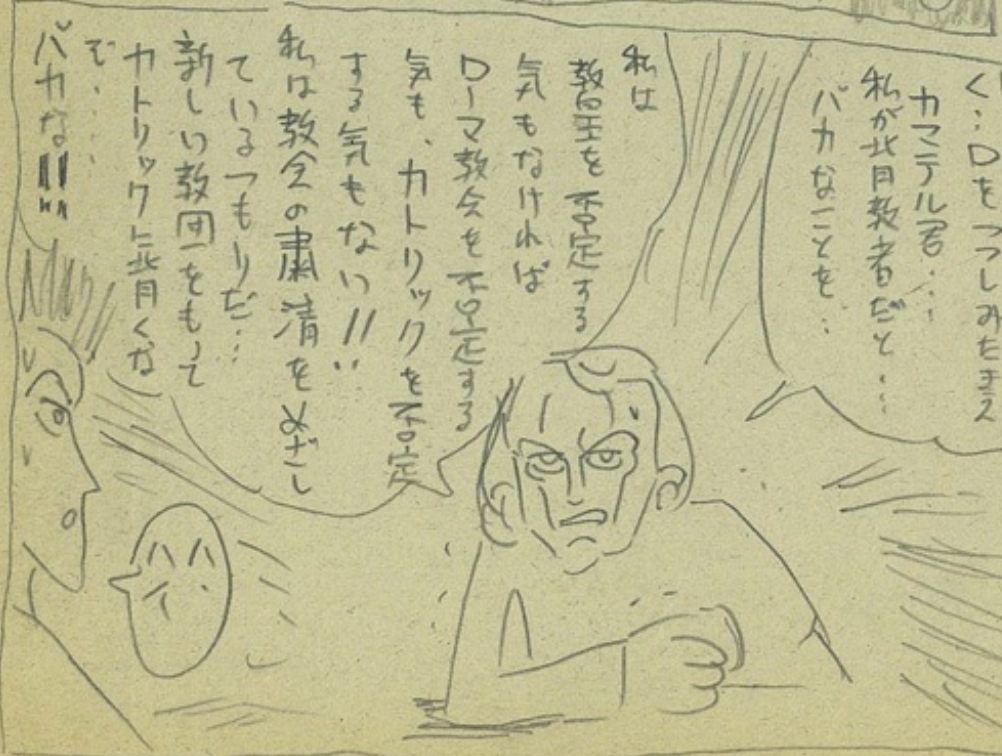 く…口をつつしみたまえ
カマテル君…
私が背教者だと…
バカなことを…
私は
教皇を否定する
気もなければ
ローマ教会を否定する
気も、カトリックを否定
する気もない!!
私は教会の粛清をめざし
ているつもりだ…
新しい教団をもって
カトリックに背くな
ど……
バカな!!